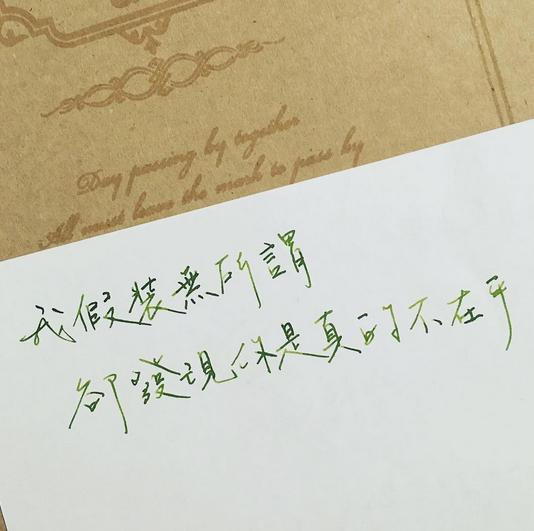 Day passing by together
All must leave the mark to pass by
我假裝無所謂
卻發現你是真的不在乎